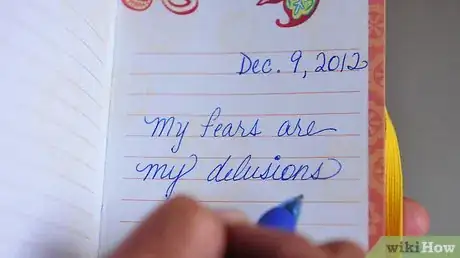 Dec. 9, 2012
My fears are
my delusions
wikiHow